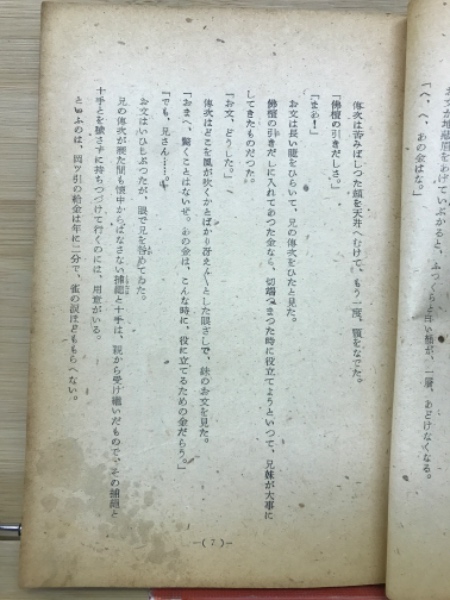 お文が地藏眉をあげていぶかると、ふつくらと白い顏が、一層、あどけなくなる。
「へ、へ、あの金はな。」
傳次は苦みばしつた顏を天井へむけて、もう一度、顎をなでた。
「佛檀の引きだしさ。」
「まあ！」
お文は長い睫をひらいて、兄の傳次をひたと見た。
佛檀の引きだしに入れてあつた金なら、切端つまつた時に役立てようといつて、兄妹が大事に
してきたものだつた。
「お文、どうした。」
傳次はどこを風が吹くかとばかり冴えん〳〵とした眼ざしで、妹のお文を見た。
「おまへ、驚くことはないぜ。あの金は、こんな時に、役に立てるための金だらう。」
「でも、兄さん……。」
お文はいひしぶつたが、眼で兄を咎めてゐた。
兄の傳次が寢た間も懷中からはなさない捕繩と十手は、親から受け繼いだもので、その捕繩と
十手とを穢さずに持ちつづけて行くのには、用意がいる。
といふのは、岡ツ引の給金は年に二分で、雀の涙ほどももらへない。
—( 7 )—